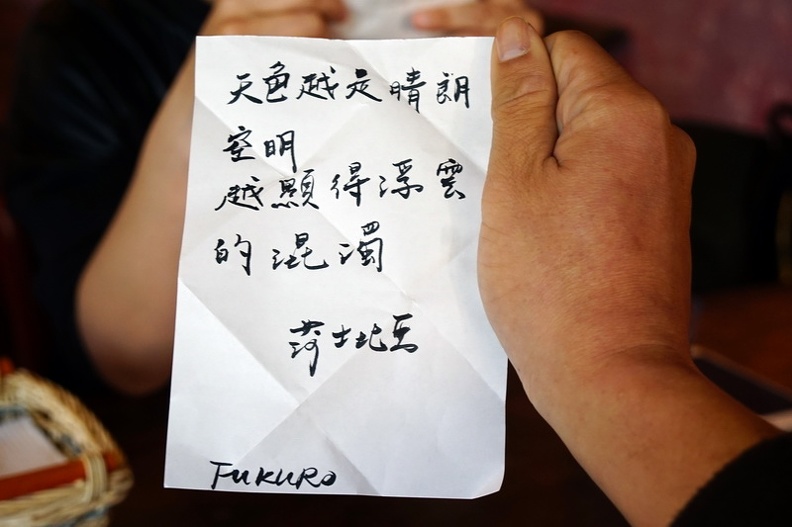 天色越是晴朗
空明
越顯得浮雲
的混濁
莎士比亞
FUKURO